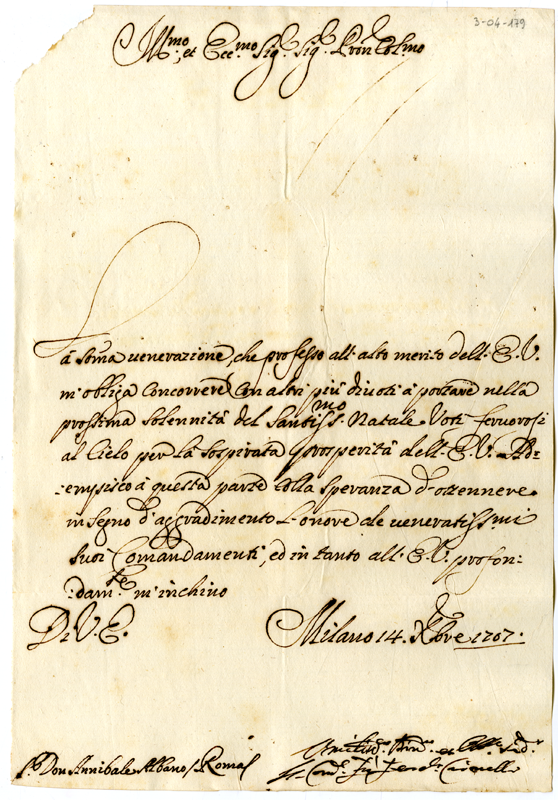 3-04-179
Ill.mo, et Ecc.mo Sig.r Sig.r Pron Col.mo
La som̃a venerazione, che professo all'alto merito dell'E. V.
m'obliga Concorrere Con altri più divoti à portare nella
prossima solennità del Santiss.mo Natale Voti fervorosi
al Cielo per la sospirata prosperità dell'E. V. Ad=
=empisco à questa parte colla speranza d'ottennere
in segno d'aggradimento l'onore de veneratissimi
suoi Comandamenti, ed in tanto all'E. V. profon=
=dam.te m'inchino
Di V. E.
Milano 14. Xbre 1707.
S.r Don Annibale Albano / Roma
et